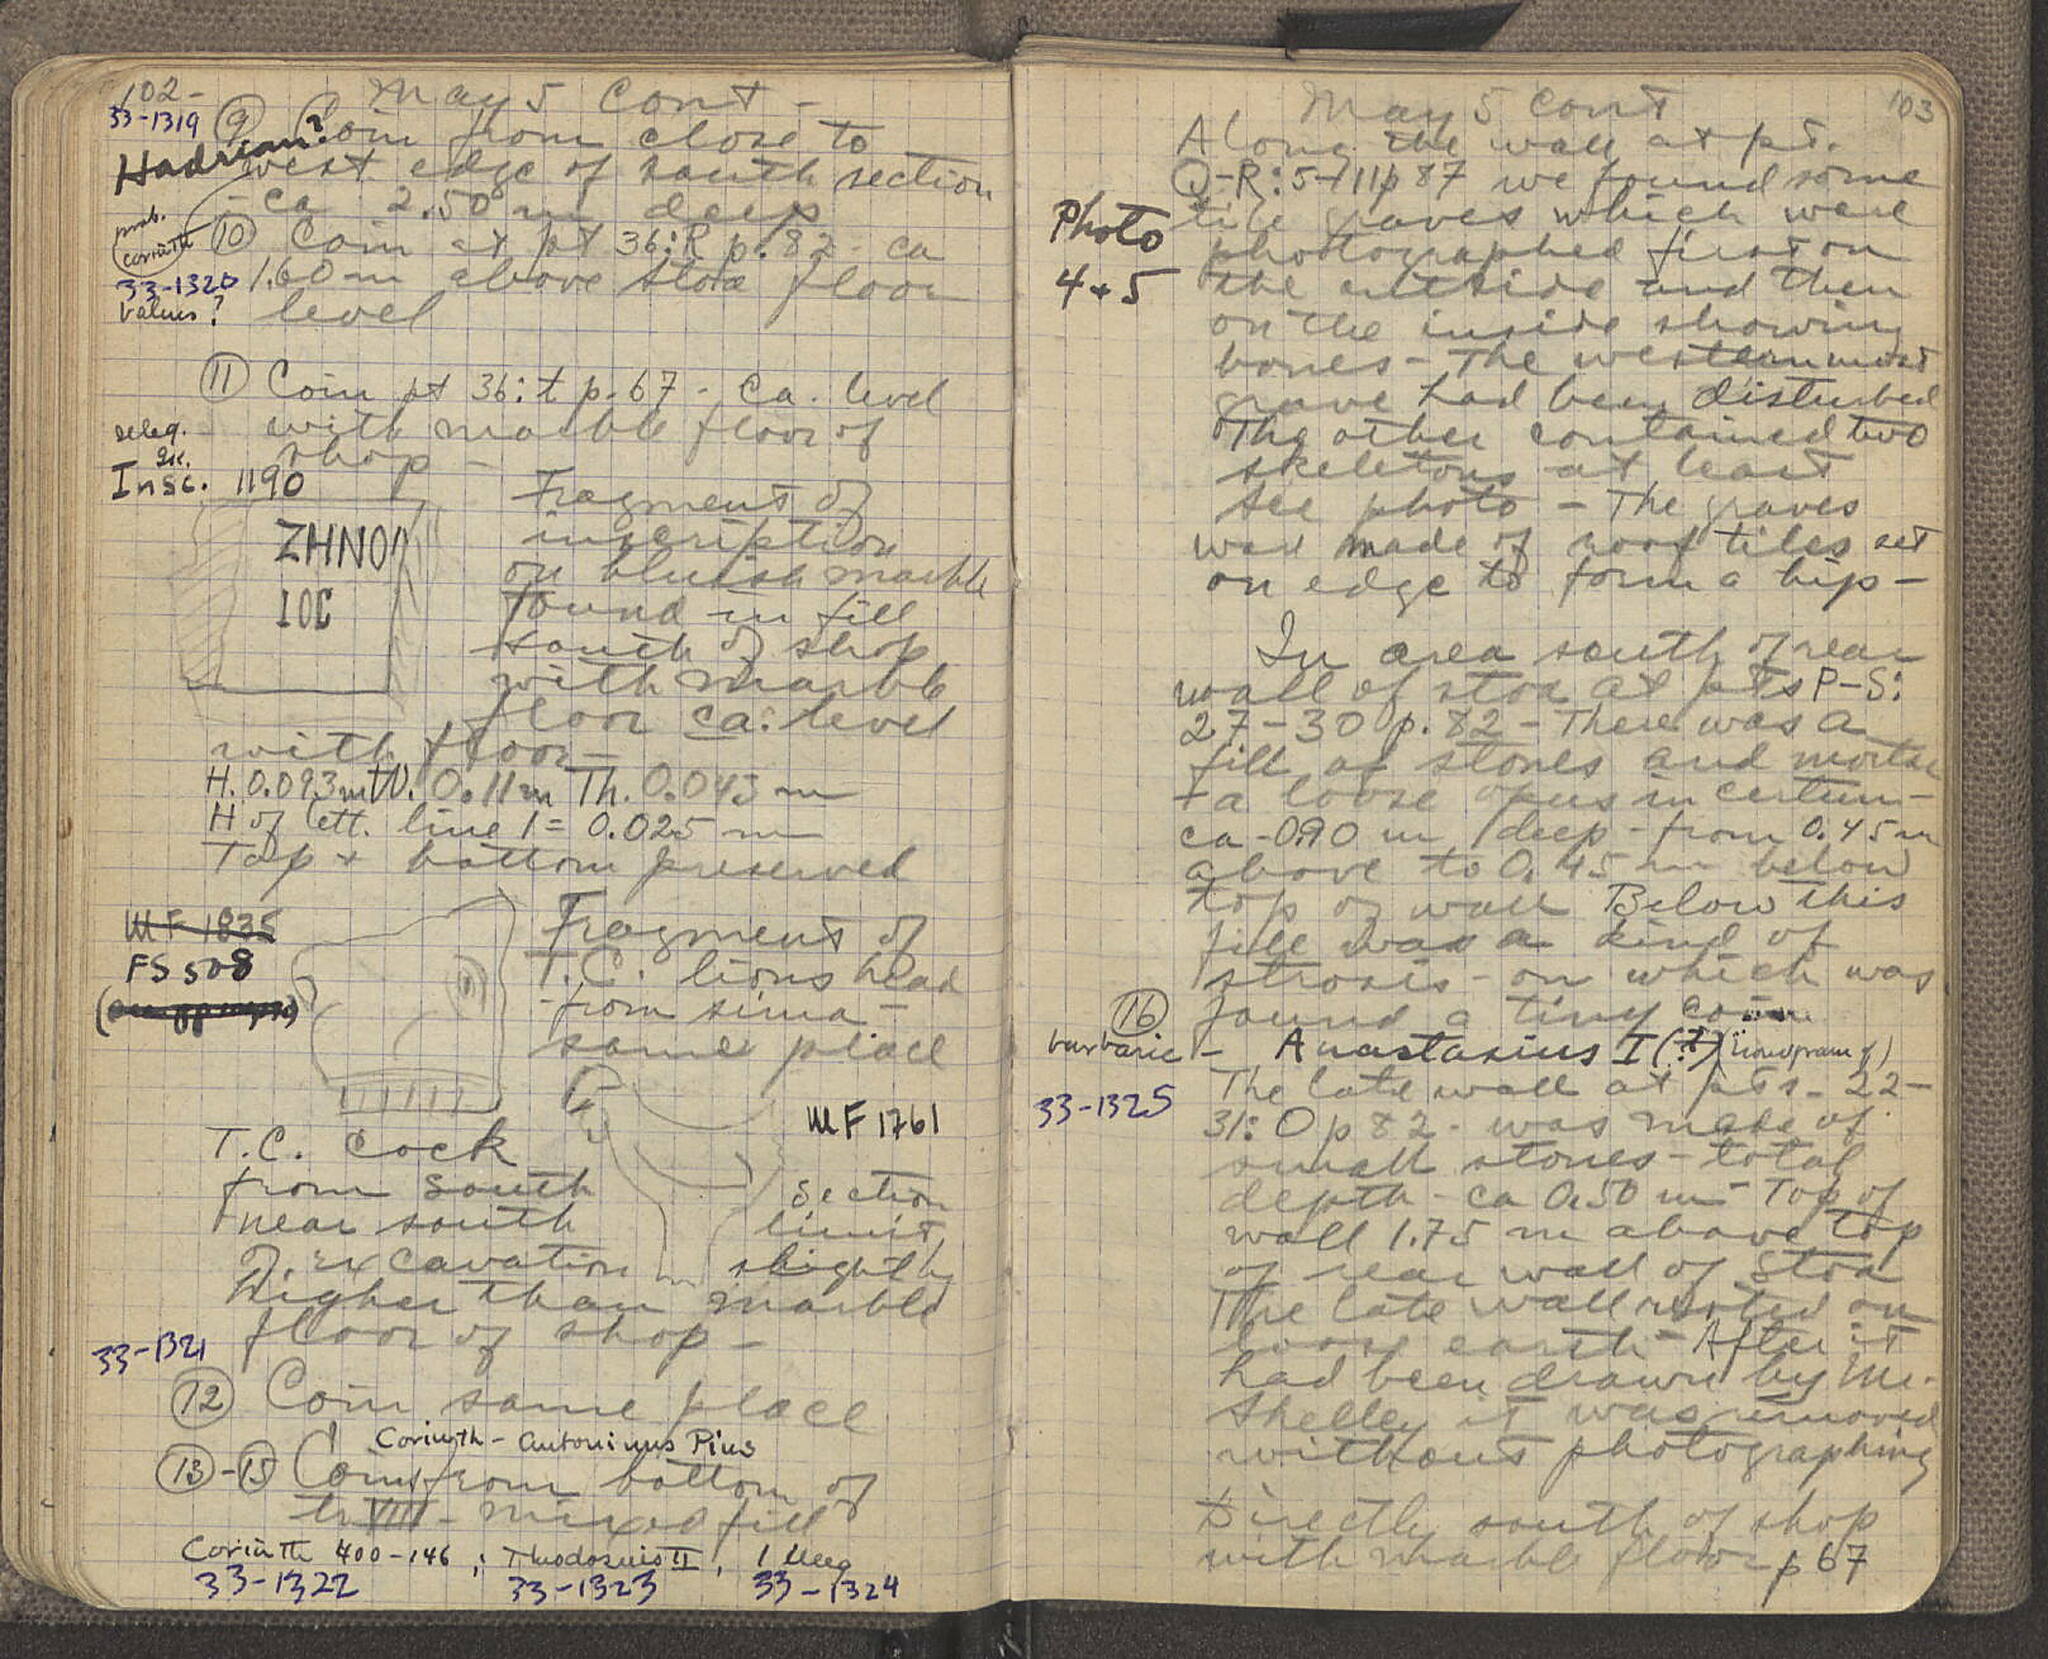 102-
May 5 Cont -
33-1319 ⑨ Coin from close to
Hadrian? west edge of south section
- ca 2.50 m deep
prob. corinth
⑩ Coin at pt 36:R p.82 - ca
33-1320 1.60 m above stoa floor
Valens? level
⑪ Coin pt 36:t p.67 - ca. level
with marble floor of
shop -
illeg. Gk.
Insc. 1190
ZHNO
IOC
Fragment of
inscription
on bluish marble
Found in fill
south of shop
with marble
floor ca. level
with floor -
H. 0.093 m W. 0.11 m Th. 0.045 m
H of lett. line 1 = 0.025 m
Top + bottom preserved
MF 1835
FS 508
Fragment of
T.C. lions head
from sima -
same place
MF 1761
T.C. Cock
from south section
near south limit
of excavation slightly
higher than marble
floor of shop -
33-1321
⑫ Coin same place
Corinth - Antoninus Pius
⑬-⑮ Coins from bottom of
tr. VIII - mixed fill
Corinth 400-146 ; Theodosius II , 1 illeg
33-1322 33-1323 33-1324
103
May 5 Cont
Along the wall at pt.
Q-R:5-11 p 87 we found some
tile graves which were
Photo 4+5
photographed first on
the outside and then
on the inside showing
bones - The westernmost
grave had been disturbed
The other contained two
skeletons at least
see photo - The graves
was made of roof tiles set
on edge to form a hip -
In area south of rear
wall of stoa at pts P-S:
27-30 p. 82 - There was a
fill of stones and mortar
- a loose opus incertum -
ca - 0.90 m deep - from 0.45 m
above to 0.45 m below
top of wall Below this
fill was a kind of
strosis - on which was
⑯ found a tiny coin
barbaric - Anastasius I (?) (monogram)
33-1325
The late wall at pts - 22-
31:O p 82 - was made of
small stones - total
depth - ca 0.50 m - Top of
wall 1.75 m above top
of rear wall of Stoa
The late wall rested on
loose earth - After it
had been drawn by Mr.
Shelley it was removed
without photographing
Directly south of shop
with marble floor p 67